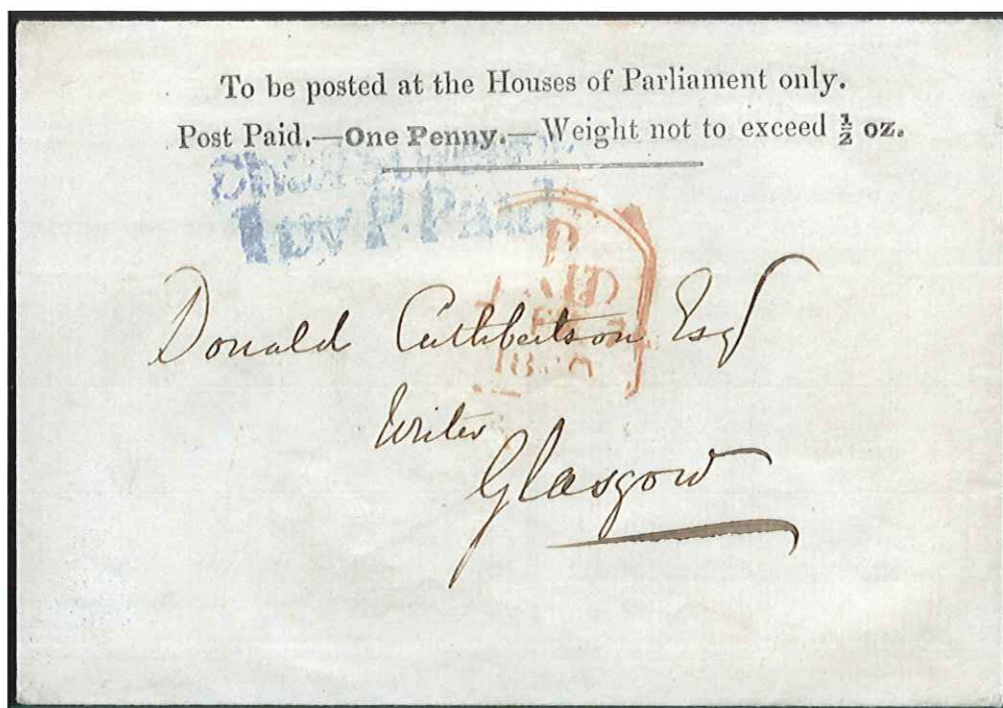 To be posted at the Houses of Parliament only.
Post Paid.—One Penny.—Weight not to exceed ½ oz.
Py P. Paid
P
PAID
18
Donald Cuthbertson Esqr
Writer
Glasgow